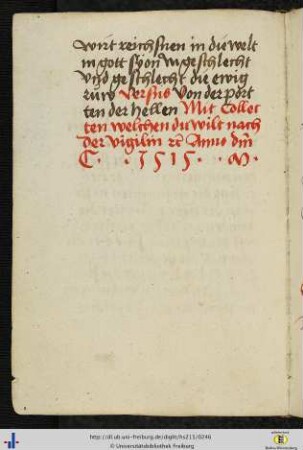 wirt reichsnen in die welt
in gott syon in geschlecht
vnd geschlecht die ewig
ruw Versus Von der port
ten der Hellen Mit Collec
ten welchen du wilt nach
Der vigilin rc Anno dm̄
C. .1515. .M.
http://dl.ub.uni-freiburg.de/diglit/hs215/0246
© Universitätsbibliothek Freiburg